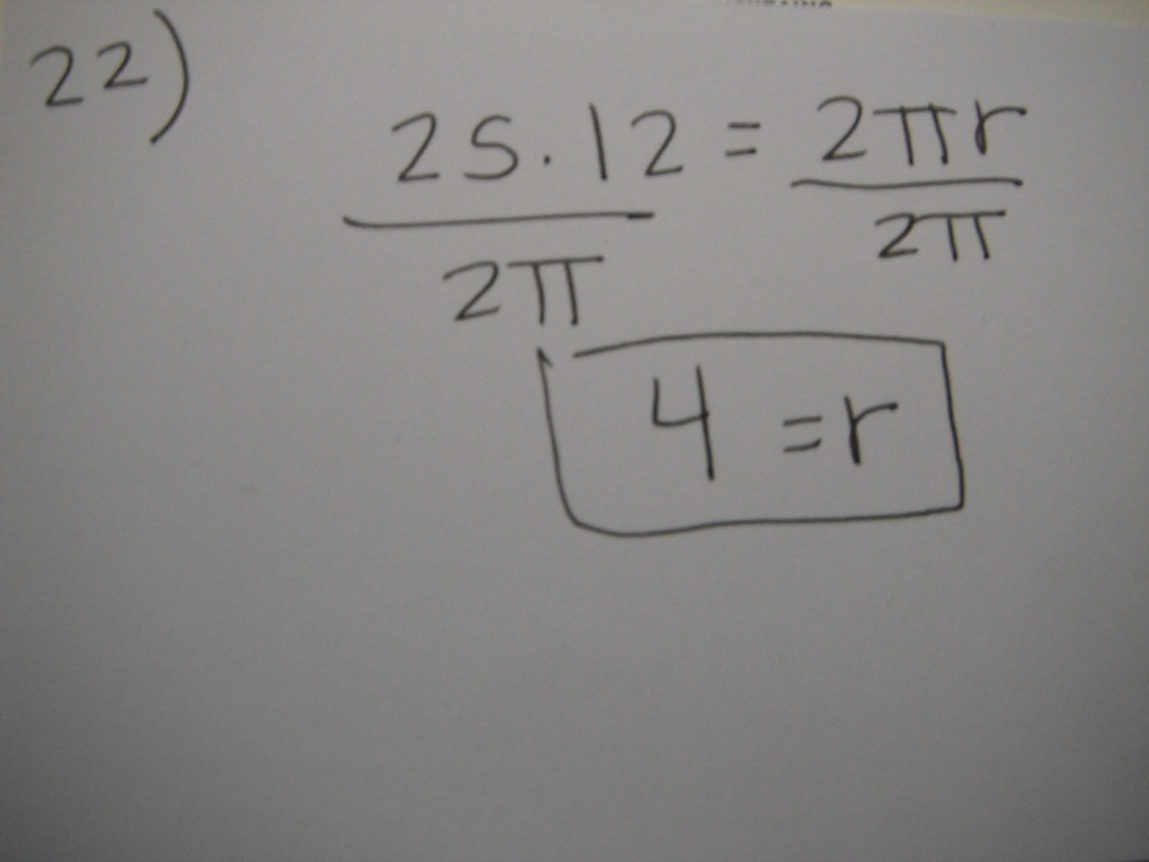 22)
25.12 = 2πr
2π 2π
4 = r